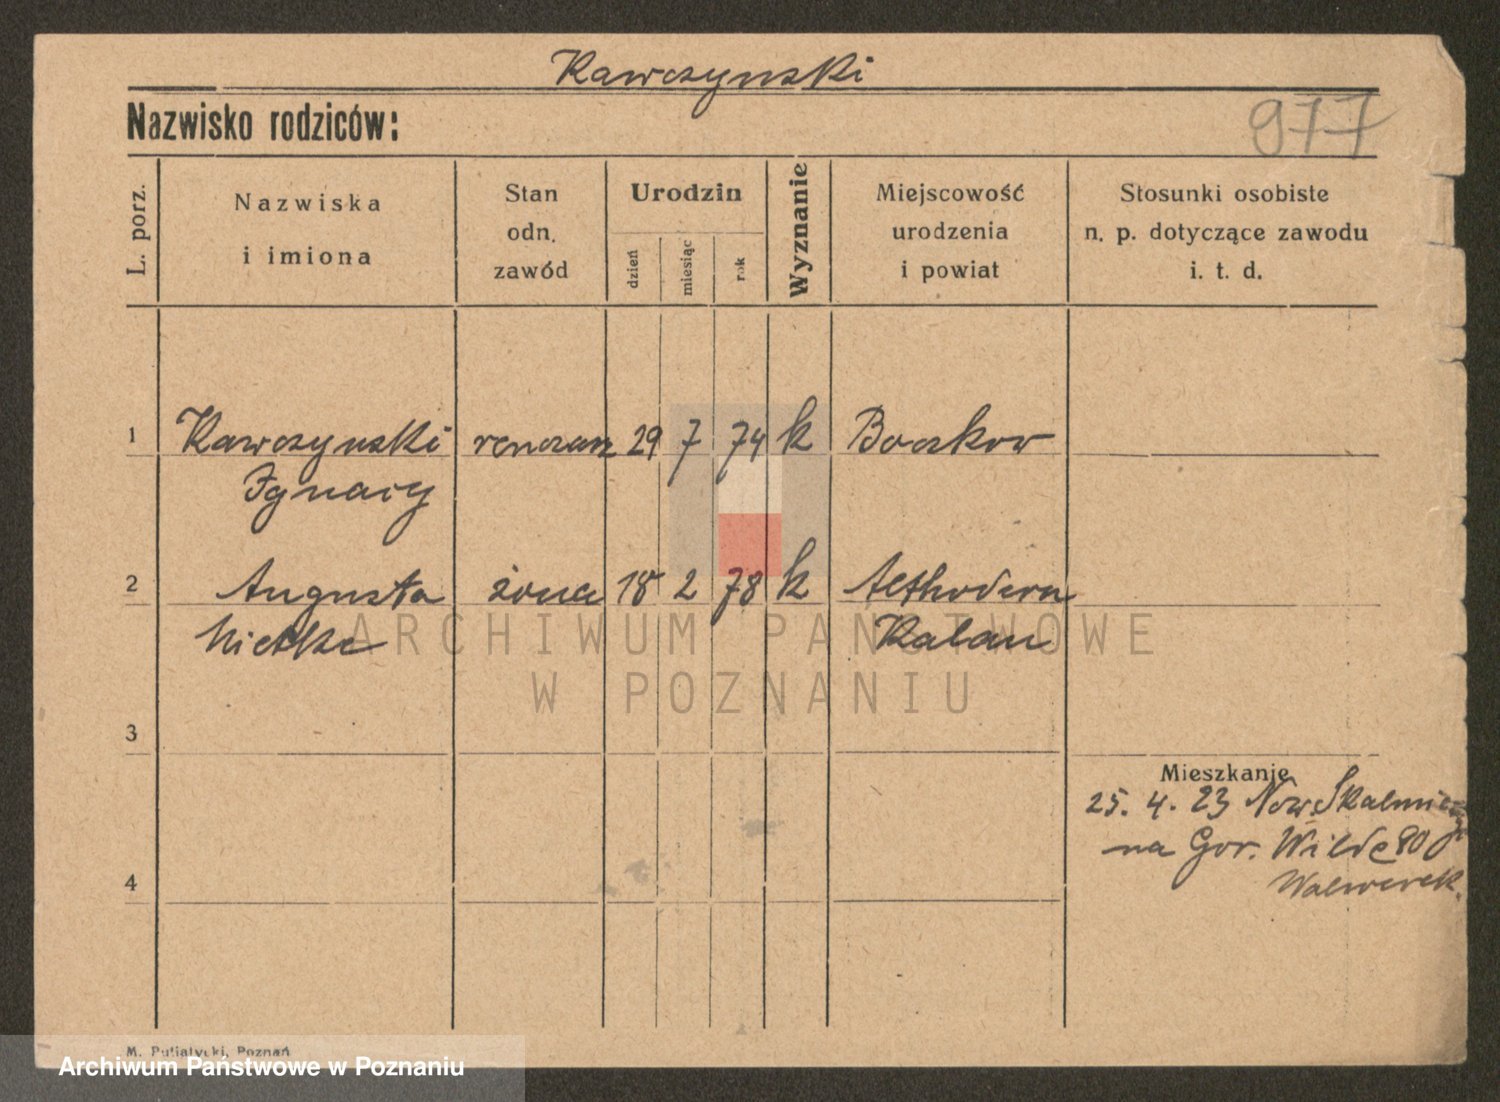 Kawczynski
Nazwisko rodziców:
977
L. porz.
Nazwiska
i imiona
Stan
odn.
zawód
Urodzin
dzień
miesiąc
rok
Wyznanie
Miejscowość
urodzenia
i powiat
Stosunki osobiste
n. p. dotyczące zawodu
i. t. d.
1 Kawczynski 29 7 74 k Boczkow
Ignacy
2 Augusta żona 18 2 78 k
Kalau
3
Mieszkanie
25. 4. 23 Now. Skalmierzyc
na Gor. Wilde 80
4
ARCHIWUM PAŃSTWOWE
W POZNANIU
M. Putiatycki, Poznań
Archiwum Państwowe w Poznaniu